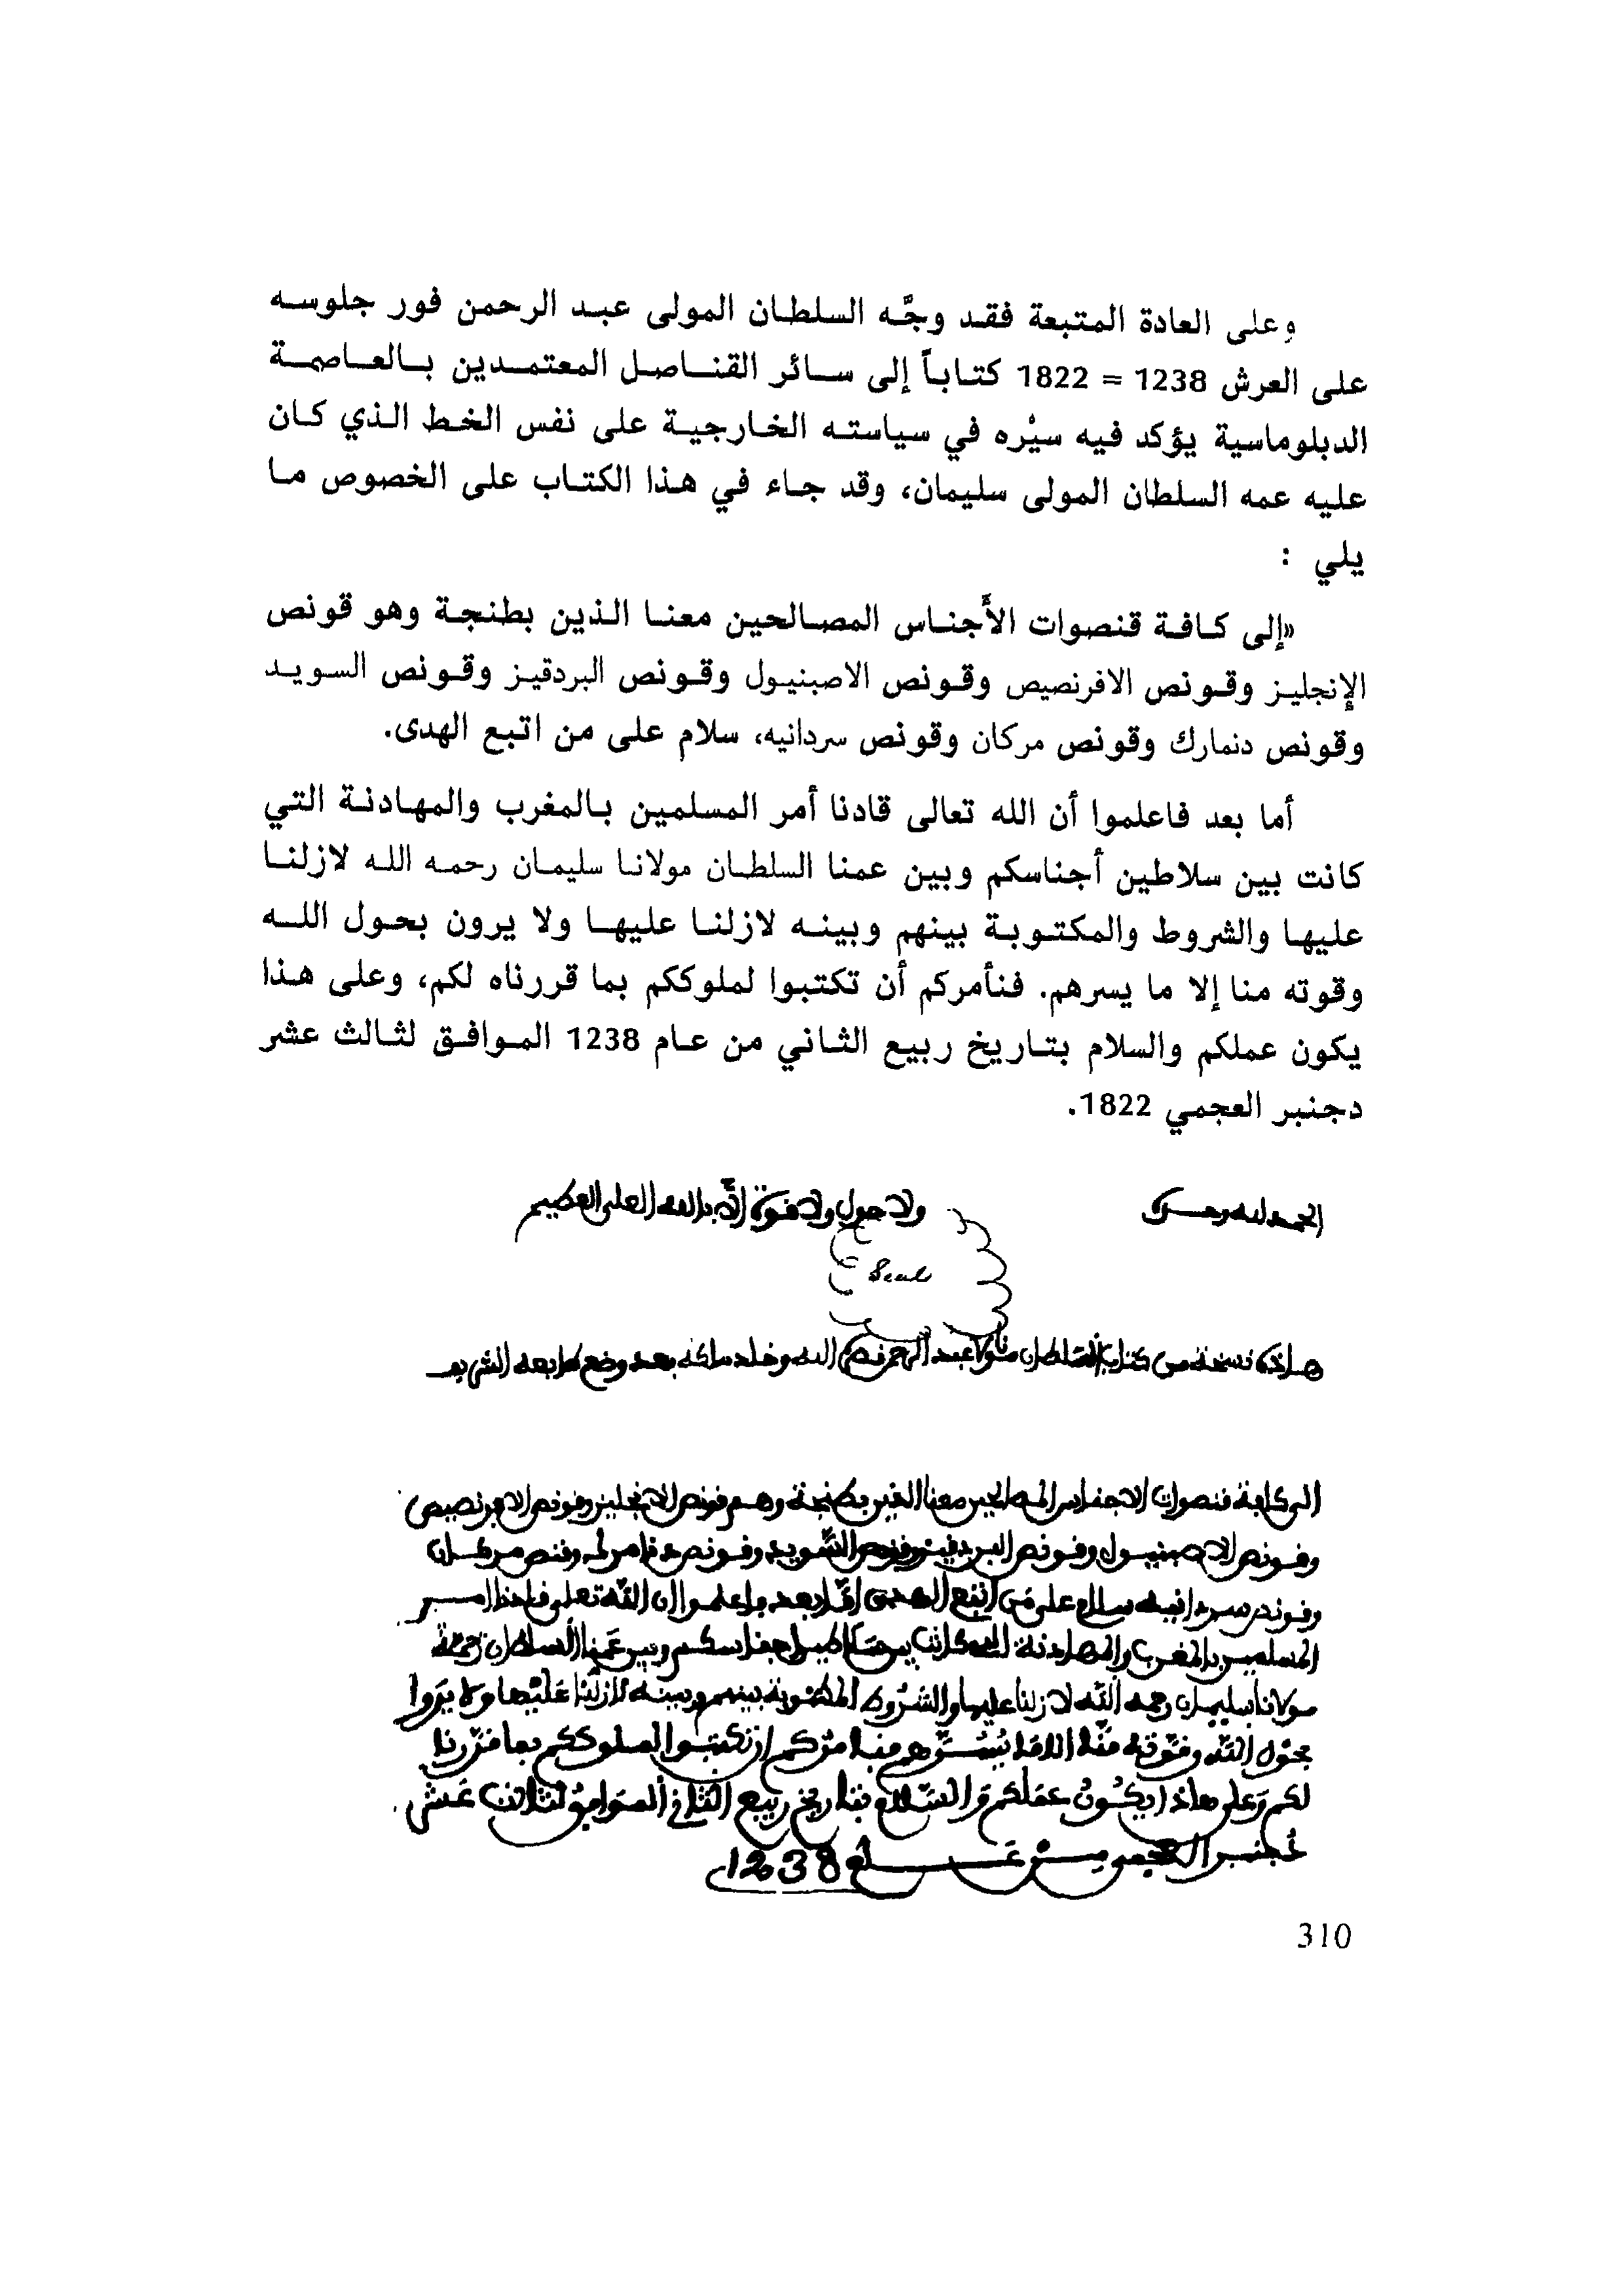 وعلى العادة المتبعة فقد وجَّه السلطان المولى عبد الرحمن فور جلوسه
على العرش 1238 = 1822 كتاباً إلى سائر القناصل المعتمدين بالعاصمة
الدبلوماسية يؤكد فيه سيْره في سياسته الخارجية على نفس الخط الذي كان
عليه عمه السلطان المولى سليمان، وقد جاء في هذا الكتاب على الخصوص ما
يلي :
«إلى كافة قنصوات الأجناس المصالحين معنا الذين بطنجة وهو قونص
الإنجليز وقونص الافرنصيص وقونص الاصبنيول وقونص البردقيز وقونص السويد
وقونص دنمارك وقونص مركان وقونص سردانيه، سلام على من اتبع الهدى.
أما بعد فاعلموا أن الله تعالى قادنا أمر المسلمين بالمغرب والمهادنة التي
كانت بين سلاطين أجناسكم وبين عمنا السلطان مولانا سليمان رحمه الله لازلنا
عليها والشروط والمكتوبة بينهم وبينه لازلنا عليها ولا يرون بحول الله
وقوته منا إلا ما يسرهم. فنأمركم أن تكتبوا لملوككم بما قررناه لكم، وعلى هذا
يكون عملكم والسلام بتاريخ ربيع الثاني من عام 1238 الموافق لثالث عشر
دجنبر العجمي 1822.
الحمد لله وحده
ولا حول ولا قوة إلا بالله العلي العظيم
Seal
هاذه نسخة من كتاب السلطان مولانا عبد الرحمن نصره الله وخلد ملكه بعد وضع طابعه الشريف
الى كافة قنصوات الاجناس المصالحين معنا الذين بطنجة وهم قونص الانجليز وقونص الافرنصيص
وقونص الاصبنيول وقونص البردقيز وقونص السويد وقونص دنامرك وقنص مركان
وقونص سردانيه سلام على من اتبع الهدى اما بعد فاعلموا ان الله تعلى
المسلمين بالمغرب والمهادنة التي كانت بين اجناسكم وبين عمنا السلطان
مولانا سليمان رحمه الله لازلنا عليها والشروط المكتوبة بينهم وبينه لازلنا عليها ولا يروا
بحول الله وقوته منا الا ما يسرهم فنامركم ان تكتبوا لملوككم بما قررنا
لكم وعلى هاذا يكون عملكم والسلام بتاريخ ربيع الثاني الموافق لثالث عشر
دجنبر العجمي من عام 1238
310